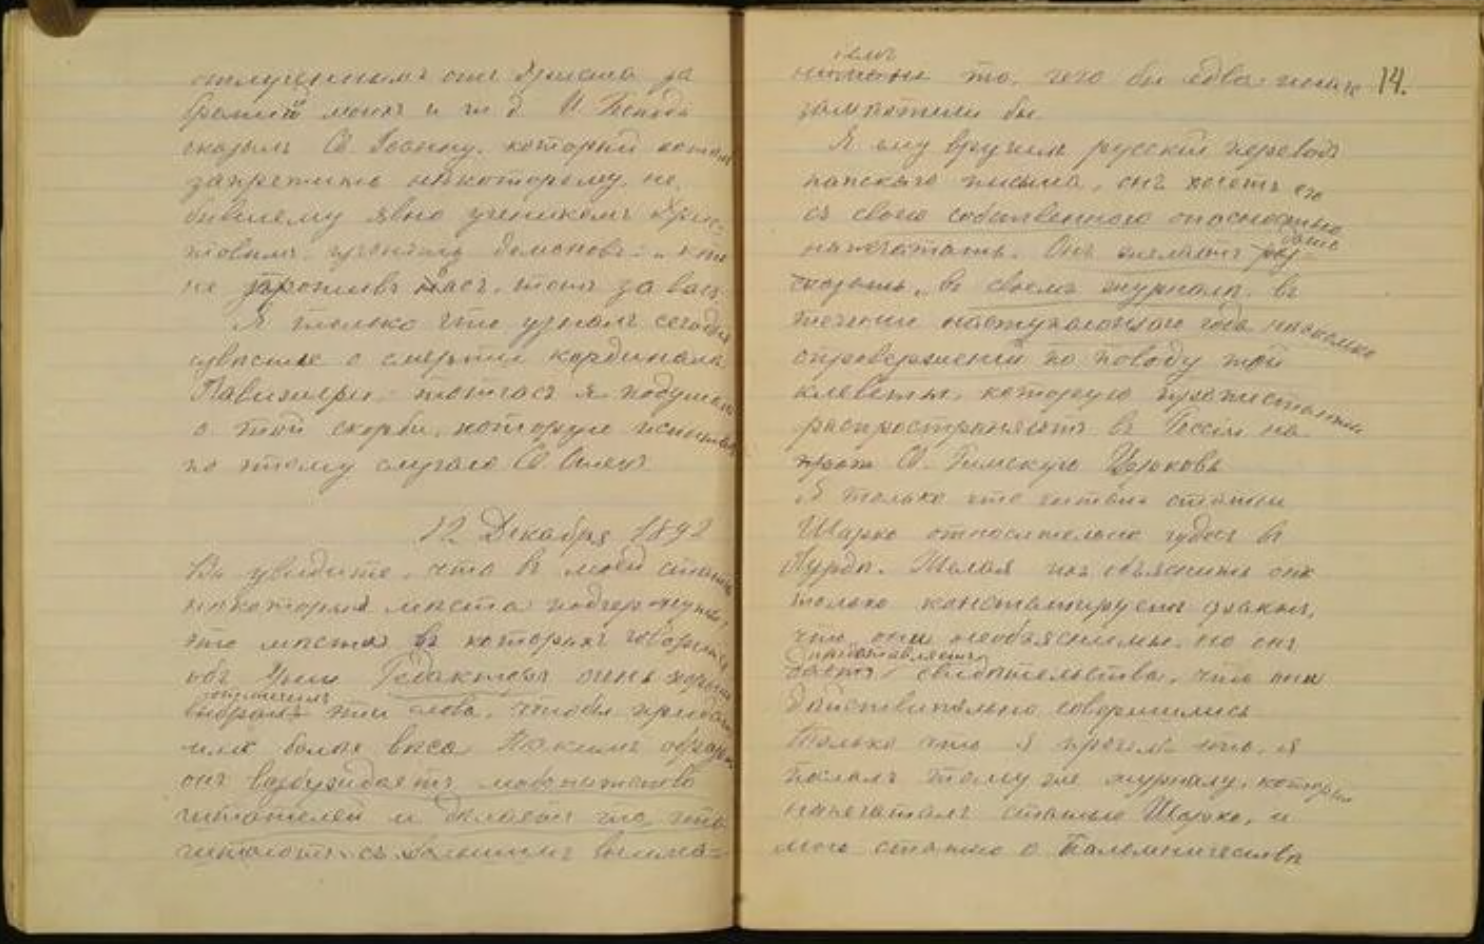 отлученнымъ отъ Христа за
братiй моихъ и т. д. И Господь
сказалъ Св. Iоанну, который хотѣлъ
запретить нѣкоторому, не
бывшему явно ученикомъ Хрис-
товымъ, изгонять демоновъ: „кто
не противъ васъ, тотъ за васъ
Я только что узналъ сегодня
извѣстiе о смерти кардинала
Лавижери, тотчасъ я подумалъ
о той скорби, которую испыталъ
по этому случаю Св. Отецъ
12 Декабря 1892
Вы увидите, что въ моей статьѣ
нѣкоторыя мѣста подчеркнуты,
это мѣста въ которыхъ говорится
объ Унiи Редакторъ очень хорошо
отмѣтилъ
выбралъ эти слова, чтобы придать
имъ болѣе вѣса Такимъ образомъ
онъ возбуждаетъ любопытство
читателей и дѣлаетъ то, что
читаютъ съ большимъ внима-
нiемъ то, чего бы едва иначе
14.
замѣтили бы
Я ему вручилъ русскiй переводъ
папскаго письма, онъ хочетъ его
съ своею собственною опасностью
напечатать. Онъ желаетъ даже
сказать, въ своемъ журналѣ, въ
теченiи наступающаго года нѣсколько
опроверженiй по поводу той
клеветы, которую протестанты
распространяютъ въ Россiи на
Св. Римскую Церковь
Я только что читалъ статьи
Шарко относительно чудесъ въ
Лурдѣ. Желая ихъ объяснить онъ
только констатируетъ факты,
что они необъяснимы, но онъ
представляетъ
даетъ свидѣтельства, что они
дѣйствительно совершились
Только что я прочелъ это, я
послалъ тому же журналу, который
напечаталъ статью Шарко, и
мою статью о Паломничествѣ